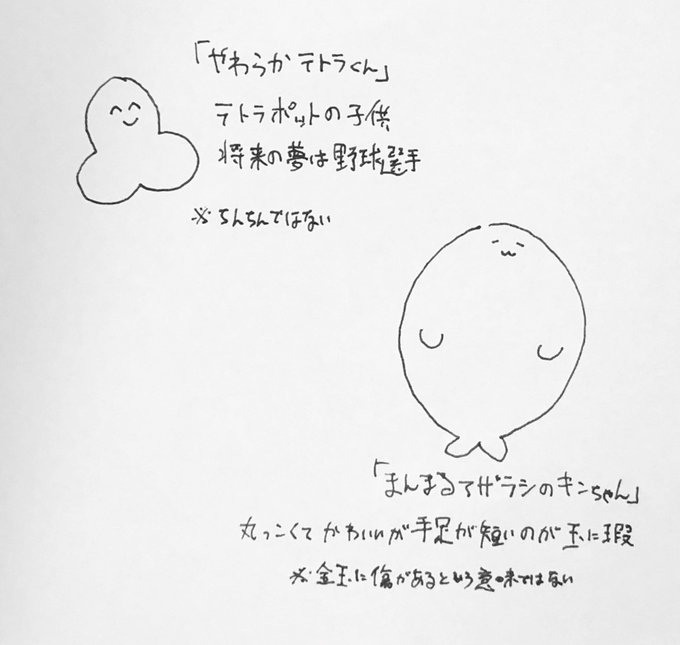 「やわらかテトラくん」
テトラポットの子供
将来の夢は野球選手
※ちんちんではない
「まんまるアザラシのキンちゃん」
丸っこくてかわいいが手足が短いのが玉に瑕
※金玉に傷があるという意味ではない